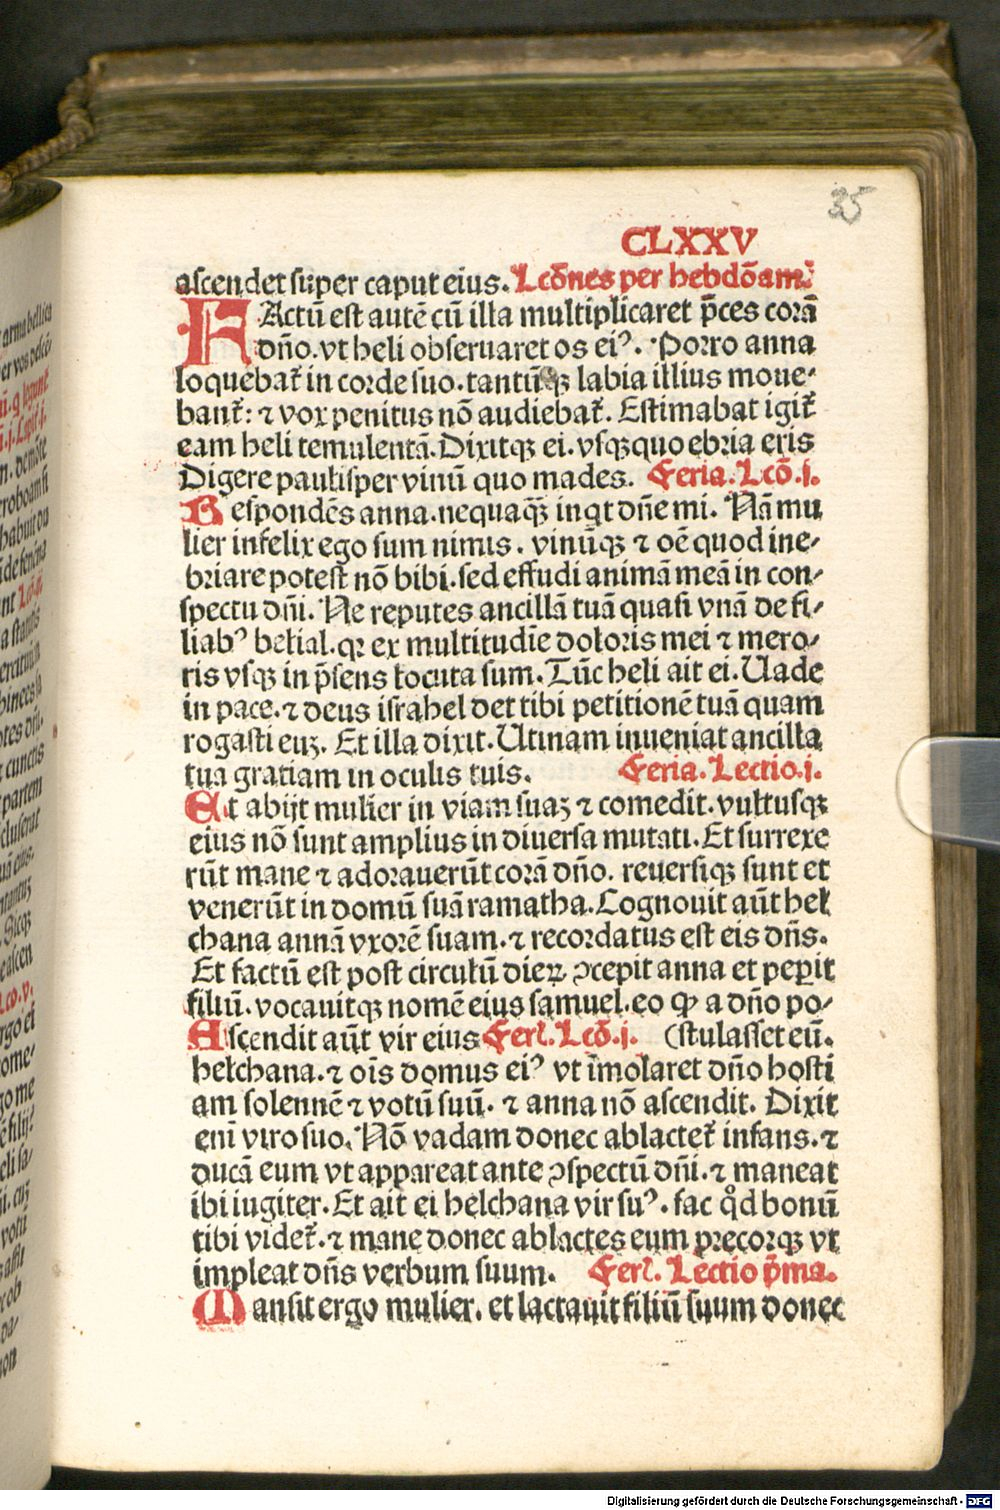 35
CLXXV
ascendet super caput eius. Lcōnes per hebdōam̄
FActū est autē cū illa multiplicaret p̄ces corā
dn̄o. vt heli obseruaret os eiꝰ. Porro anna
loquebat᷑ in corde suo. tantūqꝫ labia illius moue⸗
bant᷑: ⁊ vox penitus nō audiebat᷑. Estimabat igit᷑
eam heli temulentā. Dixitqꝫ ei. vsqꝫquo ebria eris
Digere paulisper vinū quo mades. Feria. Lcō. i.
Respondēs anna. nequaqꝫ̄ inqt dn̄e mi. Nā mu
lier infelix ego sum nimis. vinūqꝫ ⁊ oē quod ine⸗
briare potest nō bibi. sed effudi animā meā in con⸗
spectu dn̄i. Ne reputes ancillā tuā quasi vnā de fi⸗
liabꝰ belial. qꝛ ex multitudīe doloris mei ⁊ mero⸗
ris vsqꝫ in p̄sens locuta sum. Tūc heli ait ei. Uade
in pace. ⁊ deus israhel det tibi petitionē tuā quam
rogasti euꝫ. Et illa dixit. Utinam inueniat ancilla
tua gratiam in oculis tuis. Feria. Lectio. i.
Et abijt mulier in viam suaꝫ ⁊ comedit. vultusqꝫ
eius nō sunt amplius in diuersa mutati. Et surrexe
rūt mane ⁊ adorauerūt corā dn̄o. reuersiqꝫ sunt et
venerūt in domū suā ramatha. Cognouit aūt hel
chana annā vxorē suam. ⁊ recordatus est eis dn̄s.
Et factū est post circulū dieꝝ ꝯcepit anna et peꝑit
filiū. vocauitqꝫ nomē eius samuel. eo ꝙ a dn̄o po⸗
Ascendit aūt vir eius Ferl. Lcō. i. (stulasset eū.
helchana. ⁊ oīs domus eiꝰ vt īmolaret dn̄o hosti
am solennē ⁊ votū suū. ⁊ anna nō ascendit. Dixit
enī viro suo. Nō vadam donec ablactet᷑ infans. ⁊
ducā eum vt appareat ante ꝯspectū dn̄i. ⁊ maneat
ibi iugiter. Et ait ei helchana vir suꝰ. fac qͦd bonū
tibi videt᷑. ⁊ mane donec ablactes eum precorqꝫ vt
impleat dn̄s verbum suum. Ferl. Lectio p̄ma.
Mansit ergo mulier. et lactauit filiū suum donec
Digitalisierung gefördert durch die Deutsche Forschungsgemeinschaft - DFG